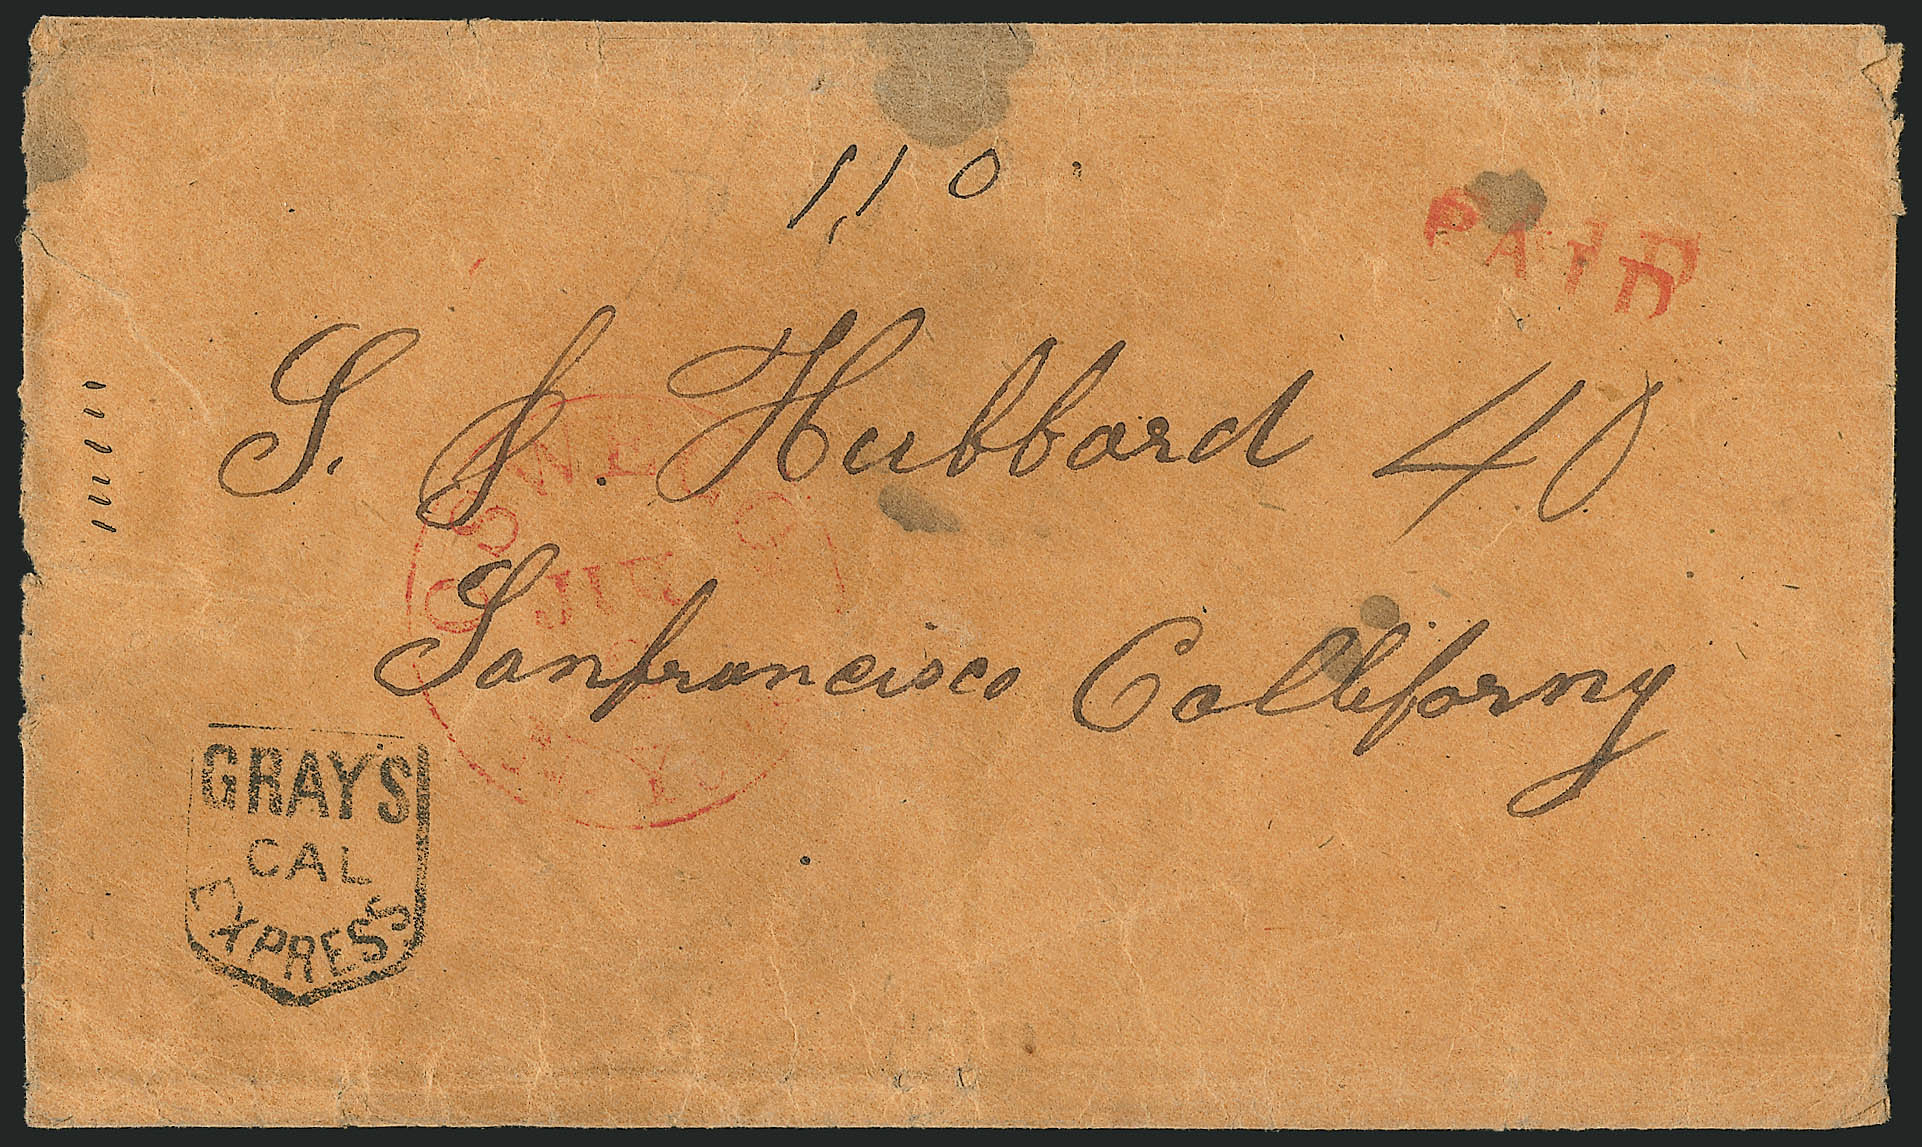 110
PAID
S. S. Hubbard 40
OSWEGO
JUL
N.Y.
Sanfrancisco Calliforny
GRAY'S
CAL
EXPRESS